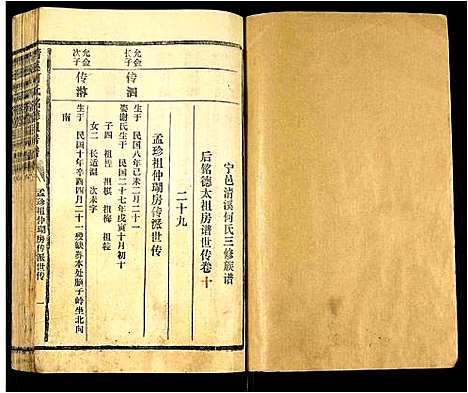 宁邑清溪何氏三修族谱
后铭德太祖房谱世传卷十
二十九
孟珍祖仲瑚房传派世传
允金
长子
传泗
生于 民国八年己未二月二十一
娶谢氏生于 民国二十七年戊寅十月初十
子四 祖胜 祖棋 祖梅 祖粒
女二 长道温 次未字
允金
次子
传游
生于 民国十年辛酉四月二十一殁缺葬本处脑子岭坐北向
南
孟珍祖仲瑚房传派世传 一